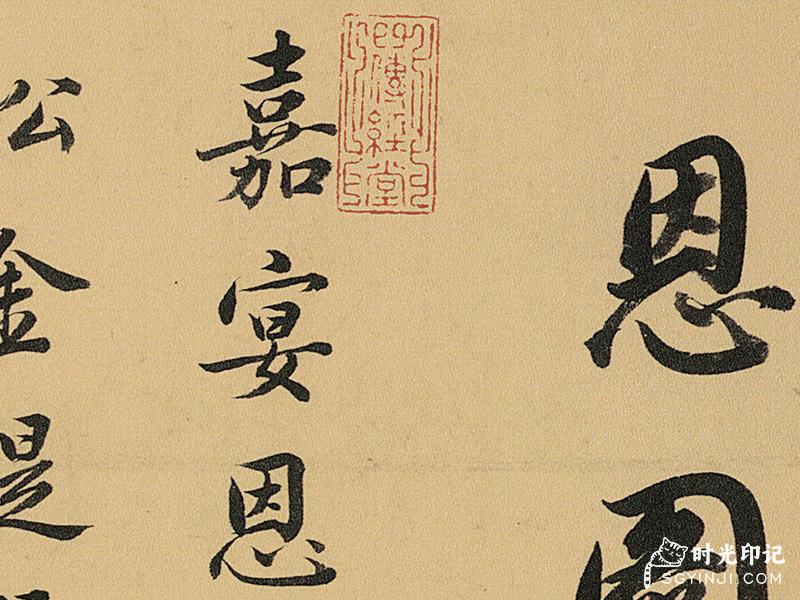 恩
傳經堂
嘉宴恩
公金是
时光印记
SGYINJI.COM